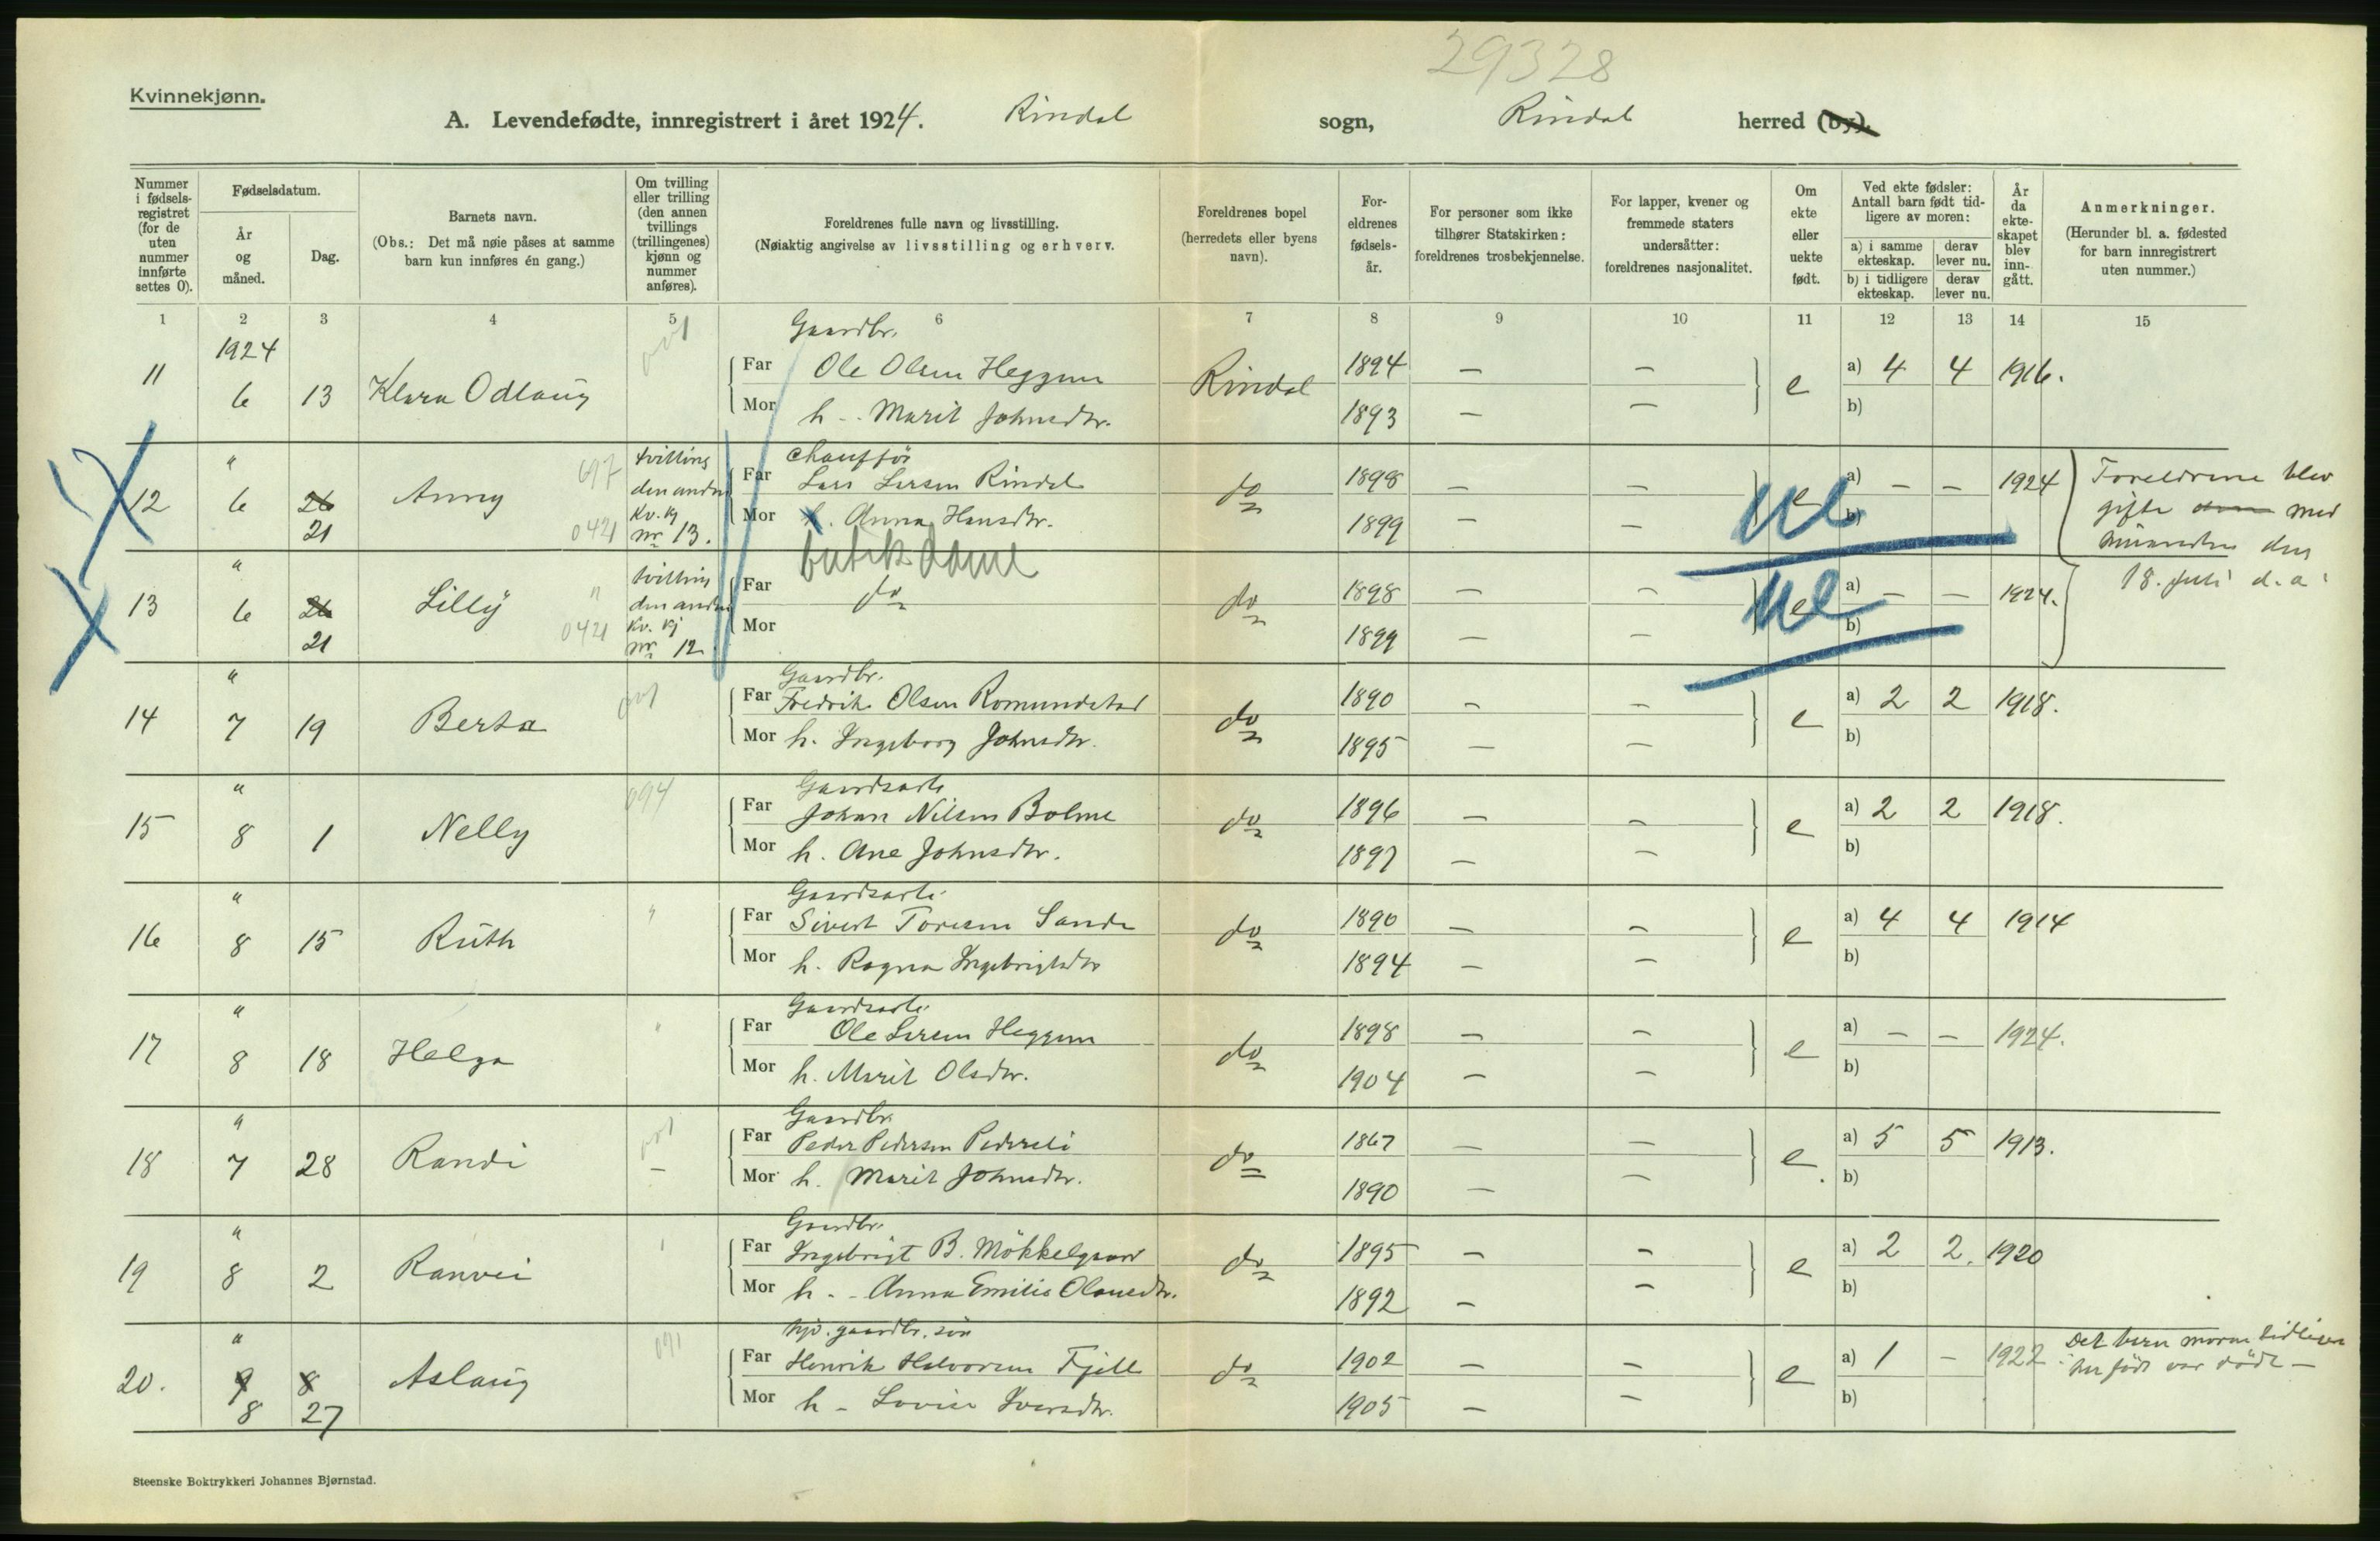 29328
Kvinnekjønn.
A. Levendefødte, innregistrert i året 1924. Rindal sogn, Rindal herred (by).
Nummer i fødsels-registret (for de uten nummer innførte settes 0).
Fødselsdatum.
År og måned.
Dag.
Barnets navn.
(Obs.: Det må nøie påses at samme barn kun innføres én gang.)
Om tvilling eller trilling (den annen tvillings (trillingenes) kjønn og nummer anføres).
Foreldrenes fulle navn og livsstilling.
(Nøiaktig angivelse av livsstilling og erhverv.
Foreldrenes bopel (herredets eller byens navn).
For-eldrenes fødsels-år.
For personer som ikke tilhører Statskirken: foreldrenes trosbekjennelse.
For lapper, kvener og fremmede staters undersåtter: foreldrenes nasjonalitet.
Om ekte eller uekte født.
Ved ekte fødsler: Antall barn født tid-ligere av moren:
a) i samme ekteskap.
derav lever nu.
b) i tidligere ekteskap.
derav lever nu.
År da ekte-skapet blev inn-gått.
Anmerkninger.
(Herunder bl. a. fødested for barn innregistrert uten nummer.)
1 2 3 4 5 6 7 8 9 10 11 12 13 14 15
1924
Gaardbr.
11 6 13 Klara Odlaug Far Ole Olsen Heggem Rindal 1894 — — e a) 4 4 1916.
Mor h. - Marit Johnsdtr. 1893 — — b)
" 697 tvilling den andre Kv. kj nr 13. chauffør
12 6 26 21 Anny 0421 Far Lars Larsen Rindal do 1898 — — e a) — — 1924
Mor h. Anna Hansdtr. 1899 — — b)
butikdame
Ue
Foreldrene blev
gifte med
hinanden den
18. juli d. a.
" tvilling den andre Kv. kj nr 12
13 6 26 21 Lilly " 0421 Far do do 1898 — — e a) — — 1924.
Mor 1899 — — b)
Ue
" Gaardbr.
14 7 19 Berta Far Fredrik Olsen Romundstad do 1890 — — e a) 2 2 1918.
Mor h. Ingeborg Johnsdtr. 1895 — — b)
" 094 Gaardsarb.
15 8 1 Nelly Far Johan Nilsen Bolme do 1896 — — e a) 2 2 1918.
Mor h. Ane Johnsdtr. 1897 — — b)
" Gaardsarb.
16 8 15 Ruth " Far Sivert Toresen Sande do 1890 — — e a) 4 4 1914
Mor h. Ragna Ingebrigtsdtr 1894 — — b)
" Gaardsarb.
17 8 18 Helga " Far Ole Larsen Heggem do 1898 — — e a) — — 1924.
Mor h. Marit Olsdtr. 1904 — — b)
" Gaardbr.
18 7 28 Randi Far Peder Pedersen Pederseli do 1867 — — e a) 5 5 1913.
Mor h. Marit Johnsdtr. 1890 — — b)
" Gaardbr.
19 8 2 Ranvei Far Ingebrigt B. Møkkelgaard do 1895 — — e a) 2 2. 1920
Mor h. - Anna Emilie Olausdtr. 1892 — — b)
" 091 hjv. gaardbr. søn
20. 9 8 8 27 Aslaug Far Henrik Halvorsen Fjell do 1902 — — e a) 1 — 1922.
Mor h - Lovise Iversdtr. 1905 — — b)
Det barn moren tidligere
har født var dødf. —
Steenske Boktrykkeri Johannes Bjørnstad.